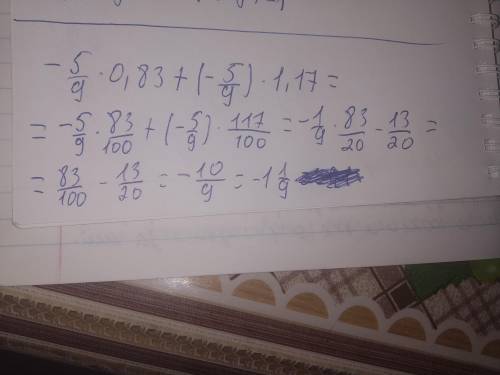 -5/9 · 0,83 + (-5/9) · 1,17 =
= -5/9 · 83/100 + (-5/9) · 117/100 = -1/9 · 83/20 - 13/20 =
= 83/100 - 13/20 = -10/9 = -1 1/9